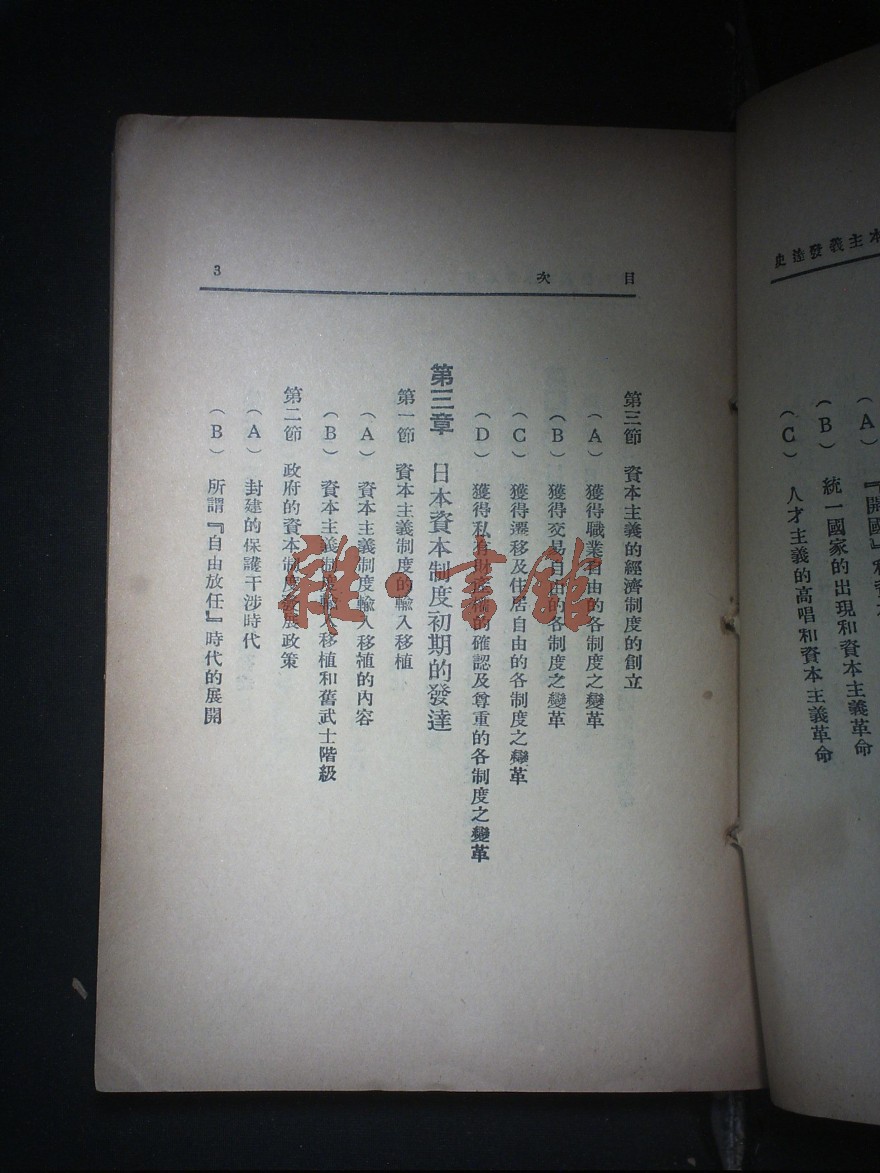 本主義發達史
（A）『開國』和資本
（B）統一國家的出現和資本主義革命
（C）人才主義的高唱和資本主義革命
目次 3
第三節 資本主義的經濟制度的創立
（A）獲得職業自由的各制度之變革
（B）獲得交易自由的各制度之變革
（C）獲得遷移及住居自由的各制度之變革
（D）獲得私有財產權的確認及尊重的各制度之變革
第三章 日本資本制度初期的發達
第一節 資本主義制度的輸入移植
（A）資本主義制度輸入移植的內容
（B）資本主義制度輸入移植和舊武士階級
第二節 政府的資本制度發展政策
（A）封建的保護干涉時代
（B）所謂『自由放任』時代的展開
雜·書館